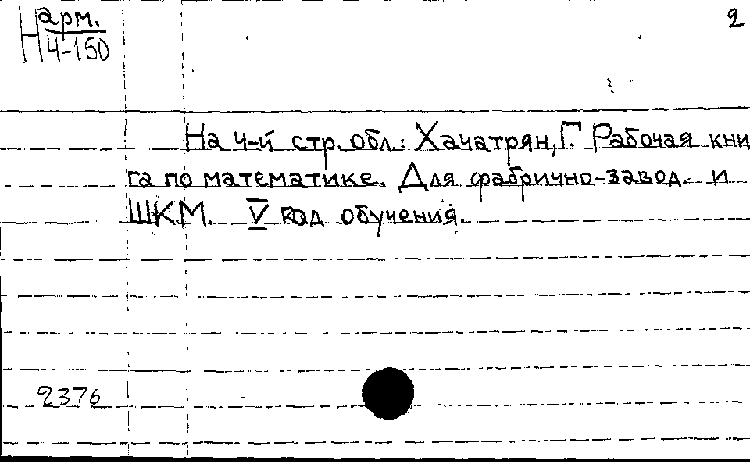 Н арм.
4-150
2
На 4-й стр. обл.: Хачатрян, Г. Рабочая кни
га по математике. Для фабрично-завод. и
ШКМ. V год обучения.
2376